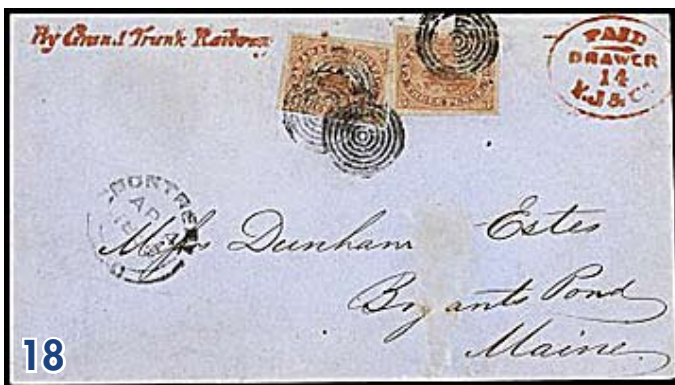 By Grand Trunk Railway
PAID
DRAWER
14
MONTRE
AP
Dunham Estes
Bryants Pond
Maine
18